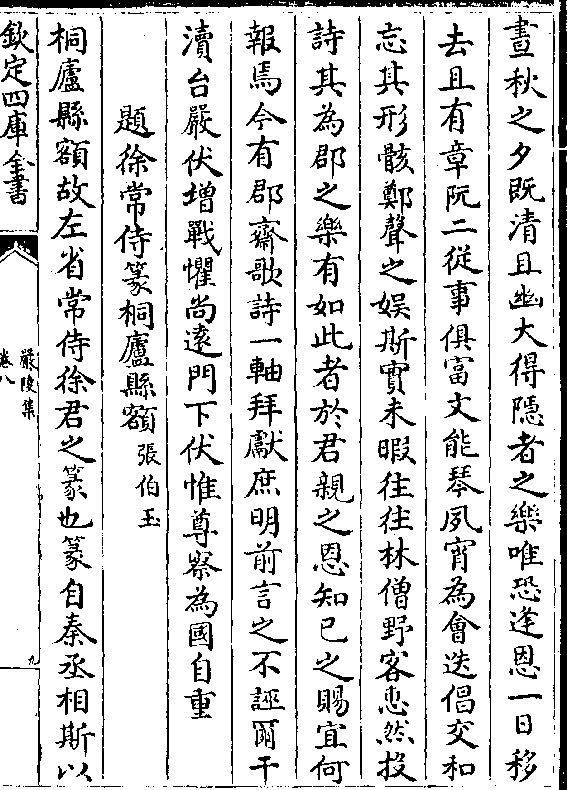 晝秋之夕既清且幽大得隱者之樂唯恐逢恩一日移
去且有章阮二從事俱富文能琴夙宵為會迭倡交和
忘其形骸鄭聲之娱斯實未暇往往林僧野客惠然投
詩其為郡之樂有如此者於君親之恩知已之賜宜何
報焉今有郡齋歌詩一軸拜獻庶明前言之不誣爾干
瀆台嚴伏增戰懼尚逺門下伏惟尊察為國自重
題徐常侍篆桐廬縣額張伯玉
桐廬縣額故左省常侍徐君之篆也篆自秦丞相斯以
欽定四庫全書
嚴陵集
卷八
九